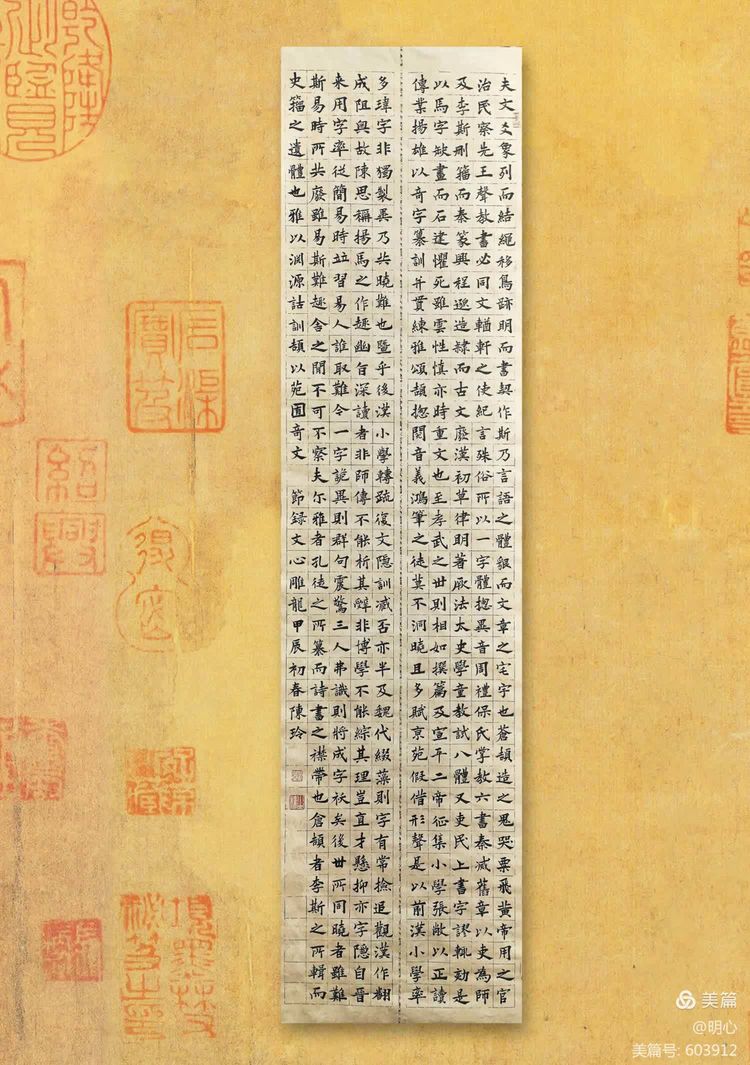 夫文爻象列而結繩移鳥跡明而書契作斯乃言語之體貌而文章之宅宇也蒼頡造之鬼哭粟飛黃帝用之官
治民察先王聲教書必同文輶軒之使紀言殊俗所以一字體揔異音周禮保氏掌教六書秦滅舊章以吏為師
及李斯刪籀而秦篆興程邈造隸而古文廢漢初草律明著厥法太史學童教試八體又吏民上書字謬輒劾是
以馬字缺畫而石建懼死雖雲性慎亦時重文也至孝武之世則相如撰篇及宣平二帝征集小學張敞以正讀
傳業揚雄以奇字纂訓并貫練雅頌頡揔閱音義鴻筆之徒莫不洞曉且多賦京苑假借形聲是以前漢小學率
多瑋字非獨製異乃共曉難也暨乎後漢小學轉疏復文隱訓臧否亦半及魏代綴藻則字有常撿追觀漢作翻
成阻奧故陳思稱揚馬之作趣幽旨深讀者非師傳不能析其辭非博學不能綜其理豈直才懸抑亦字隱自晉
来用字率從簡易時竝習易人誰取難令一字詭異則群句震驚三人弗識則將成字袄矣後世所同曉者雖難
斯易時所共廢雖易斯難趣舍之間不可不察夫尔雅者孔徒之所纂而詩書之襟帶也倉頡者李斯之所輯而
史籀之遺體也雅以淵源詁訓頡以苑囿奇文 節錄文心雕龍甲辰初春陳玲
紹興
美篇
@明心
美篇号: 603912